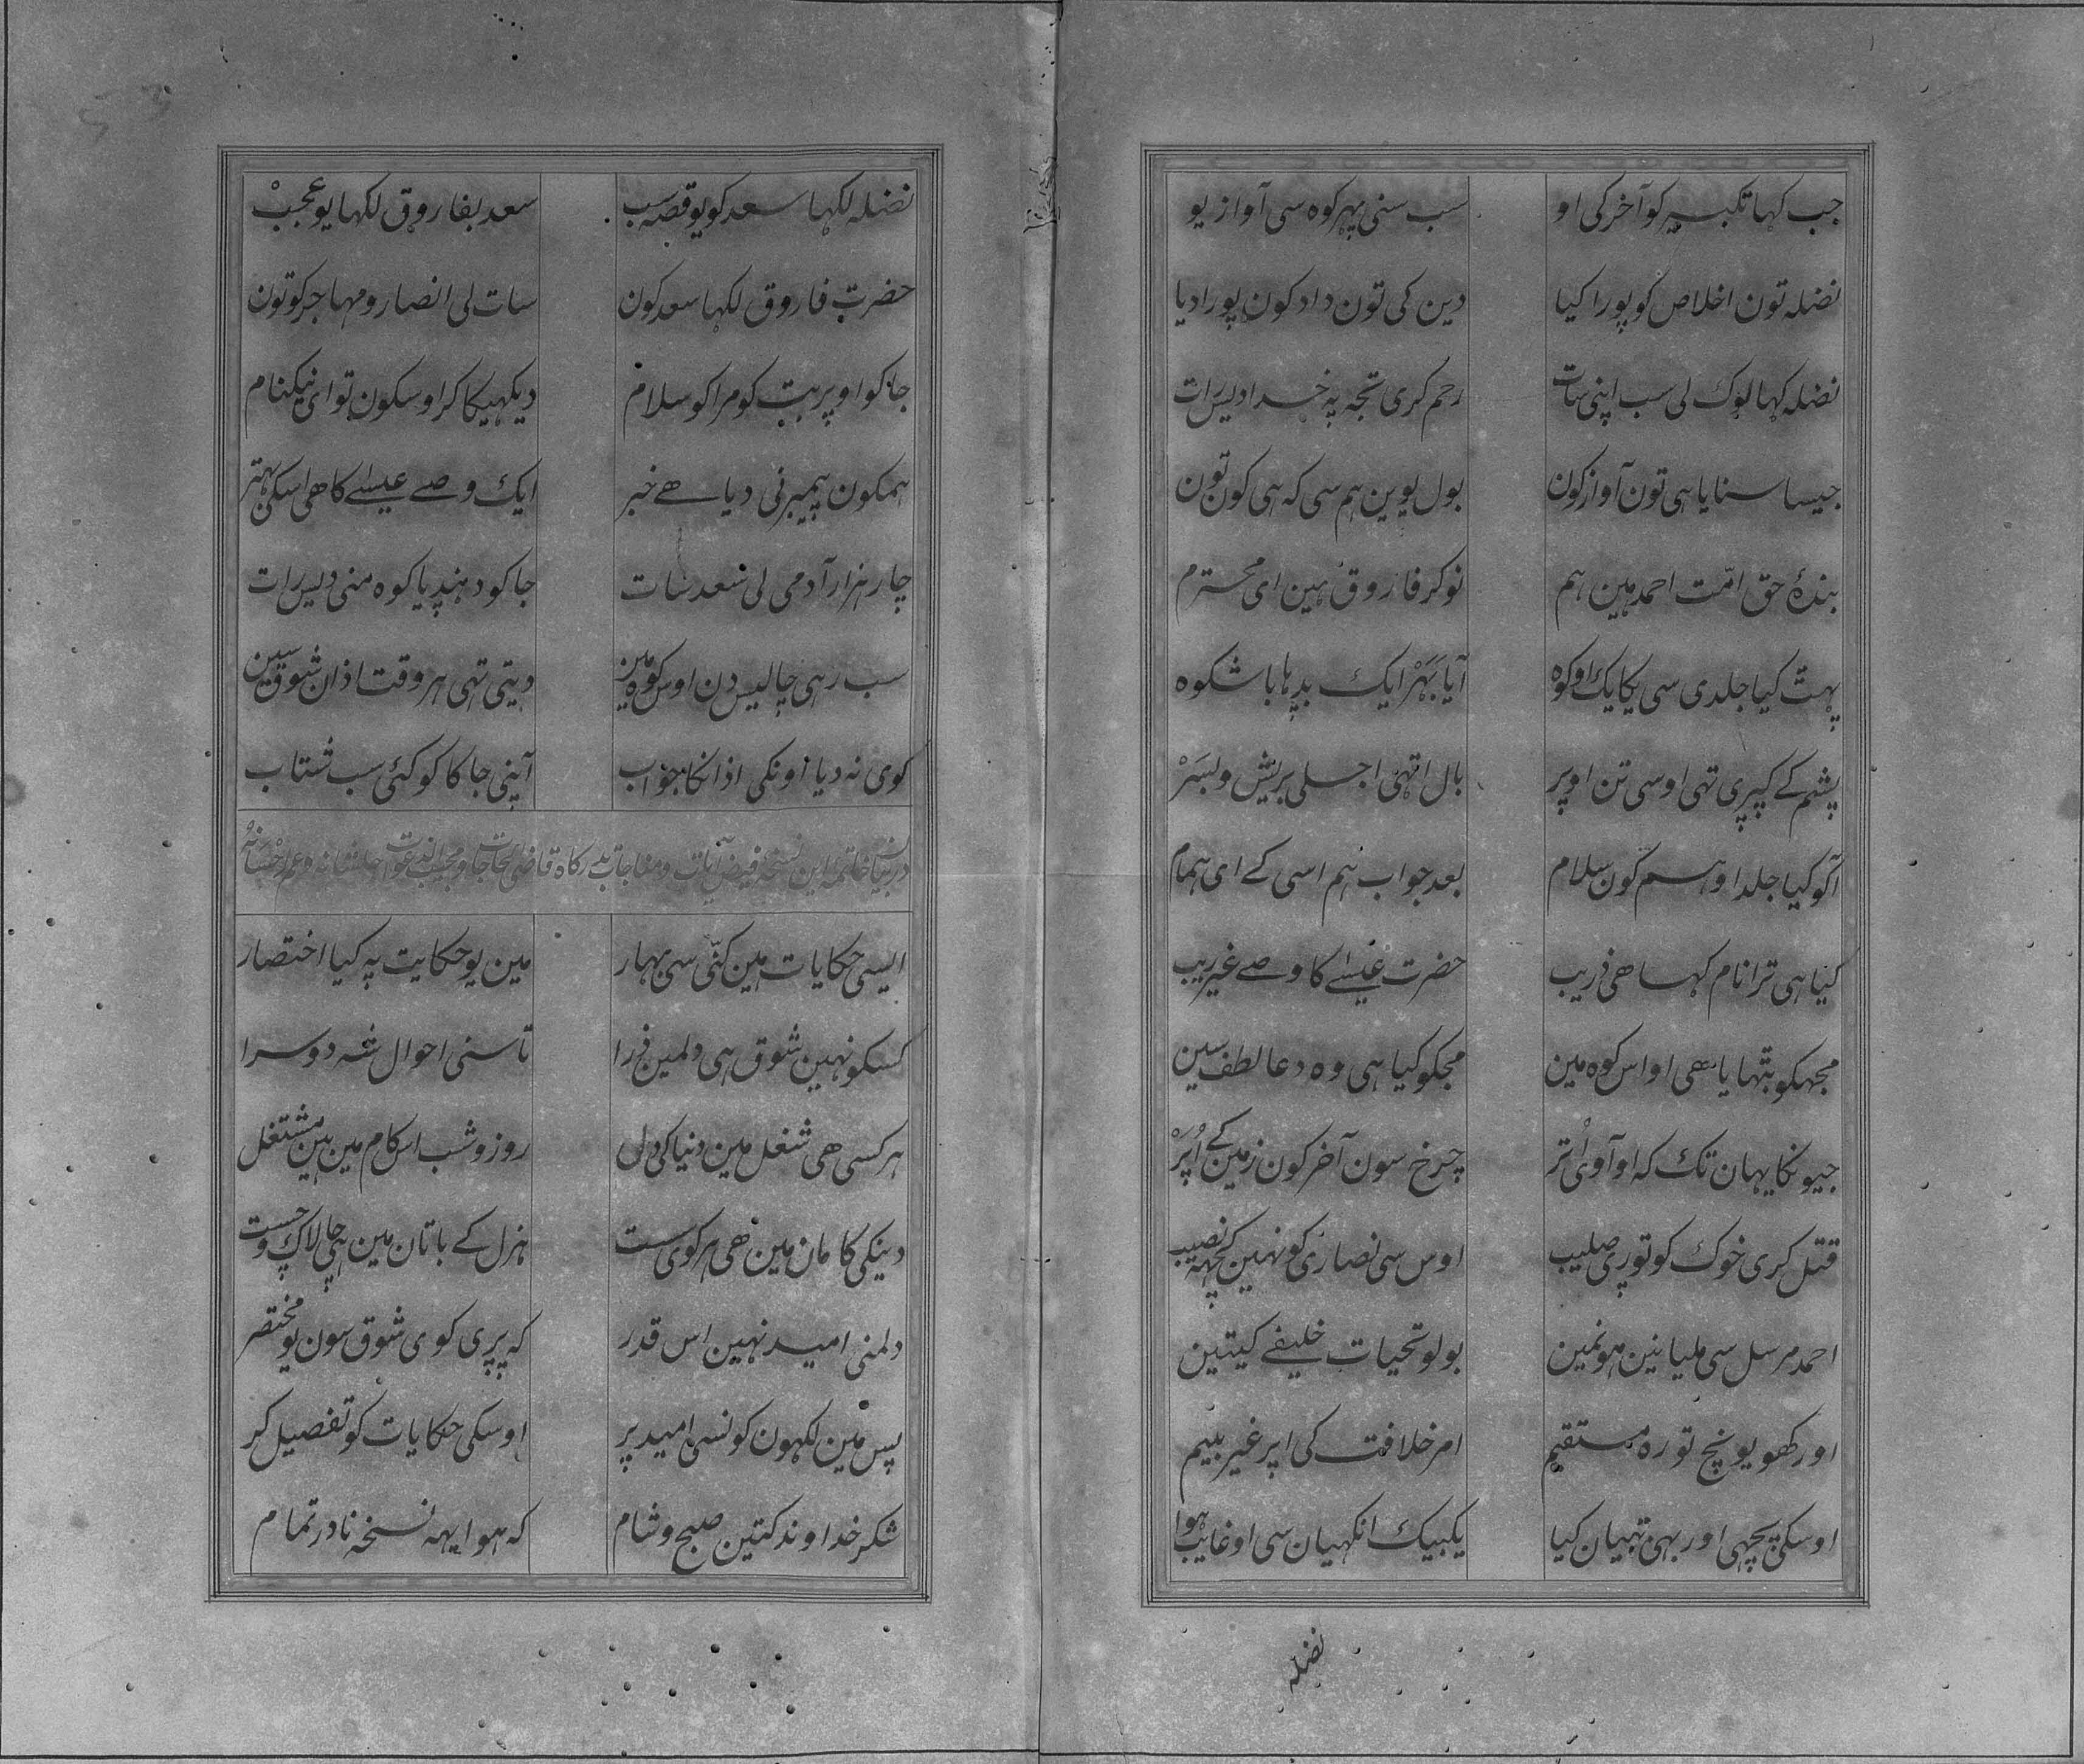 جب کہا تکبیر کو آخر کی او سب سنی پہر کوہ سی آواز یو
نضلہ تون اخلاص کو پورا کیا دین کی تون داد کون پورا دیا
نضلہ کہا لوک لی سب اپنی سات رحم کری تجہ پہ خدا دیس رات
جیسا سنایا ہی تون آواز کون بول یوین ہم سی کہ ہی کون تون
بندۂ حق امّت احمد ہین ہم نوکر فاروق ہین ای محترم
پہٹ کیا جلدی سی یکایک او کوہ آیا بَہَرْ ایک بدہا باشکوہ
پشم کے کپری تہی اوسی تن اوپر بال اتہی اجلی بریش و بسَرْ
آکو کیا جلد او ہسم کون سلام بعد جواب ہم اسی کے ای ہمام
کیا ہی ترا نام کہا ھی ذریب حضرت عیسٰے کا وصے غیر ریب
مجہکو بتہایا ھی او اس کوہ مین مجکو کیا ہی وہ دعا لطف سین
جیونکا یہان تک کہ او آوی اُتر چرخ سون آخر کون زمین کے اُپَرْ
قتل کری خوک کو توری صلیب اوس سی نصارٰی کو نہین کچہہ نصیب
احمد مرسل سی ملیا نین ہونمین بولو تحیات خلیفے کیتین
اور کھو یونچ تو رہ مستقیم امر خلافت کی اپر غیر بیم
اوسکی پچہی اور بہی تبیان کیا یکبیک انکہیان سی او غایب ہوا
نضلہ
نضلہ لکہا سعد کو یو قصہ سب سعد بفاروق لکہا یو عجبْ
حضرت فاروق لکہا سعد کون سات لی انصار و مہاجر کو تون
جا کو او پربت کو مرا کو سلام دیکہیکا کر اوسکون تو ای نیکنام
ہمکون پیمبر نی دیا ھے خبر ایک وصے عیسٰے کا ھی اسکی بہتر
چار ہزار آدمی لی سعد سات جا کو دہندیا کوہ منی دیس رات
سب رہی چالیس دن اوس کوہ مین دیتی تہی ہر وقت اذان شوق سین
کوی نہ دیا اونکی اذانکا جواب آپنی جا کا کو کئی سب شتاب
در بیان خاتمہ این نسخہ فیض آیات و مناجات بدرکاہ قاضی الحاجات و مجیب الدعوات جل شانہ و عم احسانہ
ایسی حکایات مین کنّی سی بہار مین یو حکایت پہ کیا اختصار
کسکو نہین شوق ہی دلمین ذرا تا سنی احوال شہ دوسرا
ہر کسی ھی شغل مین دنیا کی دل روز و شب اس کام مین ہین مشتغل
دینکی کامان مین ھی ہر کوی سست ہزل کے باتان مین ہی چالاک و چست
دلمنی امید نہین اس قدر کہ پری کوی شوق سون یو مختصر
پس مین لکہون کونسی امید پر اوسکی حکایات کو تفصیل کر
شکر خداوند کتین صبح و شام کہ ہوا یہہ نسخہ نادر تمام